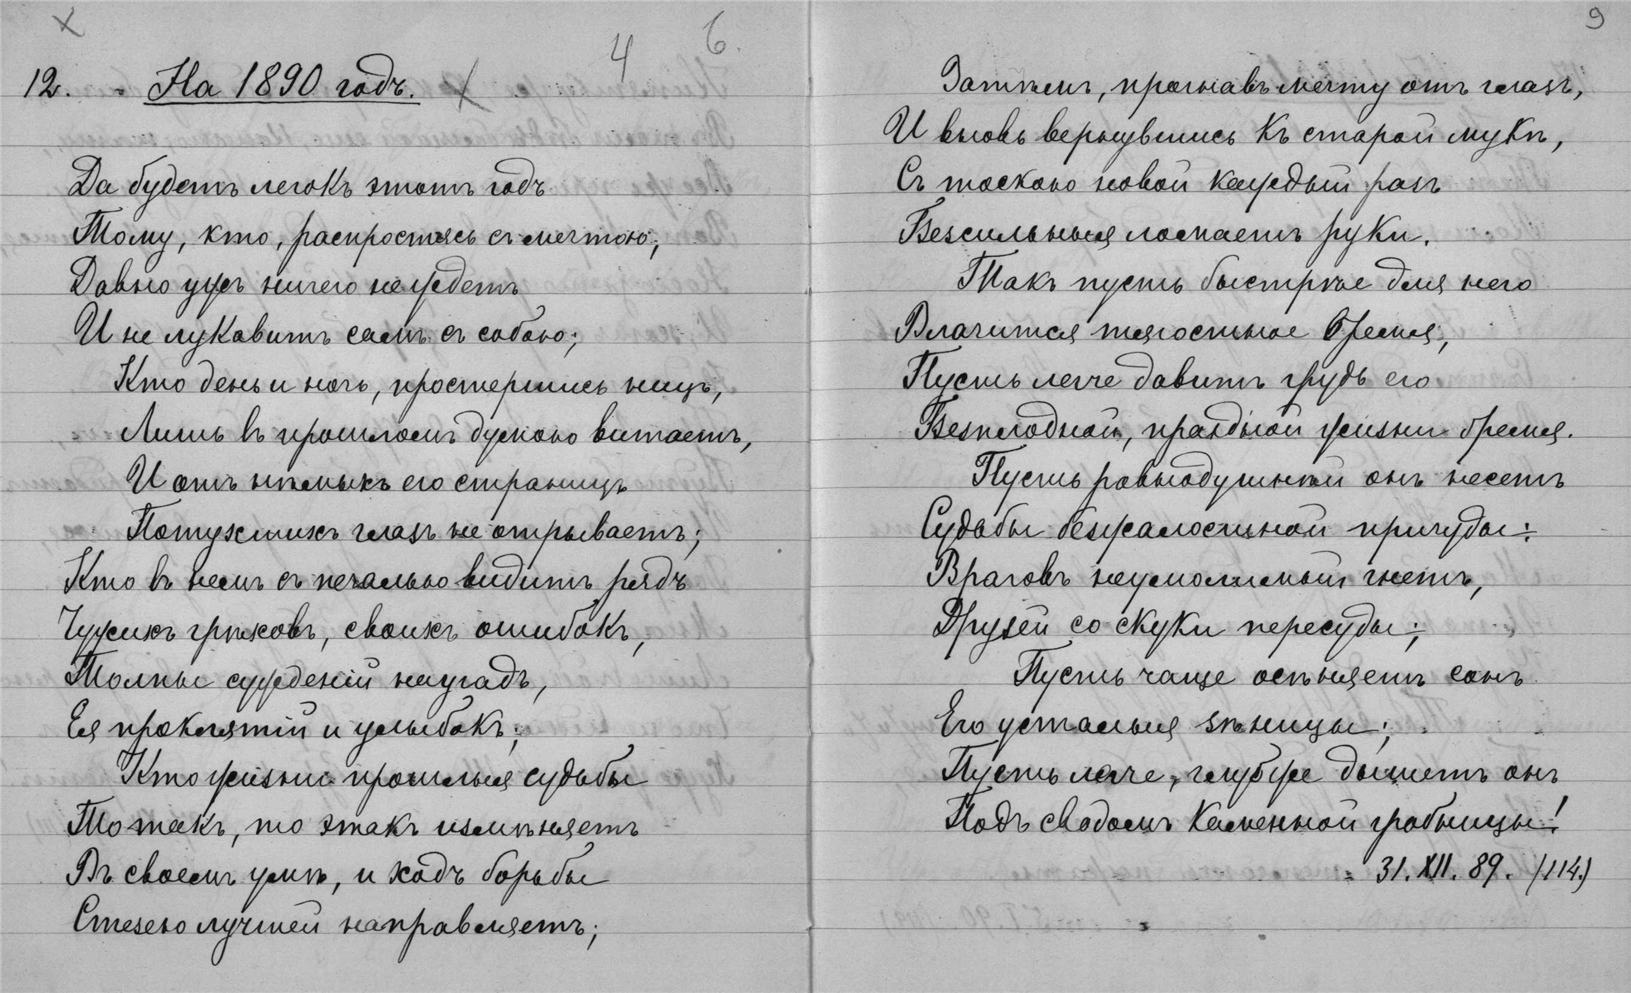 х
4
6.
12. На 1890 годъ. х
Да будетъ легокъ этотъ годъ
Тому, кто, распростясь съ мечтою,
Давно ужъ ничего не ждетъ
И не лукавитъ самъ съ собою;
Кто день и ночь, простершись ницъ,
Лишь въ прошломъ думою витаетъ,
И отъ нѣмыхъ его страницъ
Потухшихъ глазъ не отрываетъ;
Кто въ немъ съ печалью видитъ рядъ
Чужихъ грѣховъ, своихъ ошибокъ,
Толпы сужденій наугадъ,
Ея проклятій и улыбокъ;
Кто жизни прошлыя судьбы
То такъ, то этакъ измѣняетъ
Въ своемъ умѣ, и ходъ борьбы
Стезею лучшей направляетъ;
9
Затѣмъ, прогнавъ мечту отъ глазъ,
И вновь вернувшись къ старой мукѣ,
Съ тоскою новой каждый разъ
Безсильныя ломаетъ руки.
Такъ пусть быстрѣе для него
Влачится тягостное время,
Пусть легче давитъ грудь его
Безплодной, праздной жизни бремя.
Пусть равнодушнѣй онъ несетъ
Судьбы безжалостной причуды:
Враговъ неумолимый гнетъ,
Друзей со скуки пересуды;
Пусть чаще осѣняетъ сонъ
Его усталыя зѣницы;
Пусть легче, глубже дышетъ онъ
Подъ сводомъ каменной гробницы!
31. XII. 89. (114.)